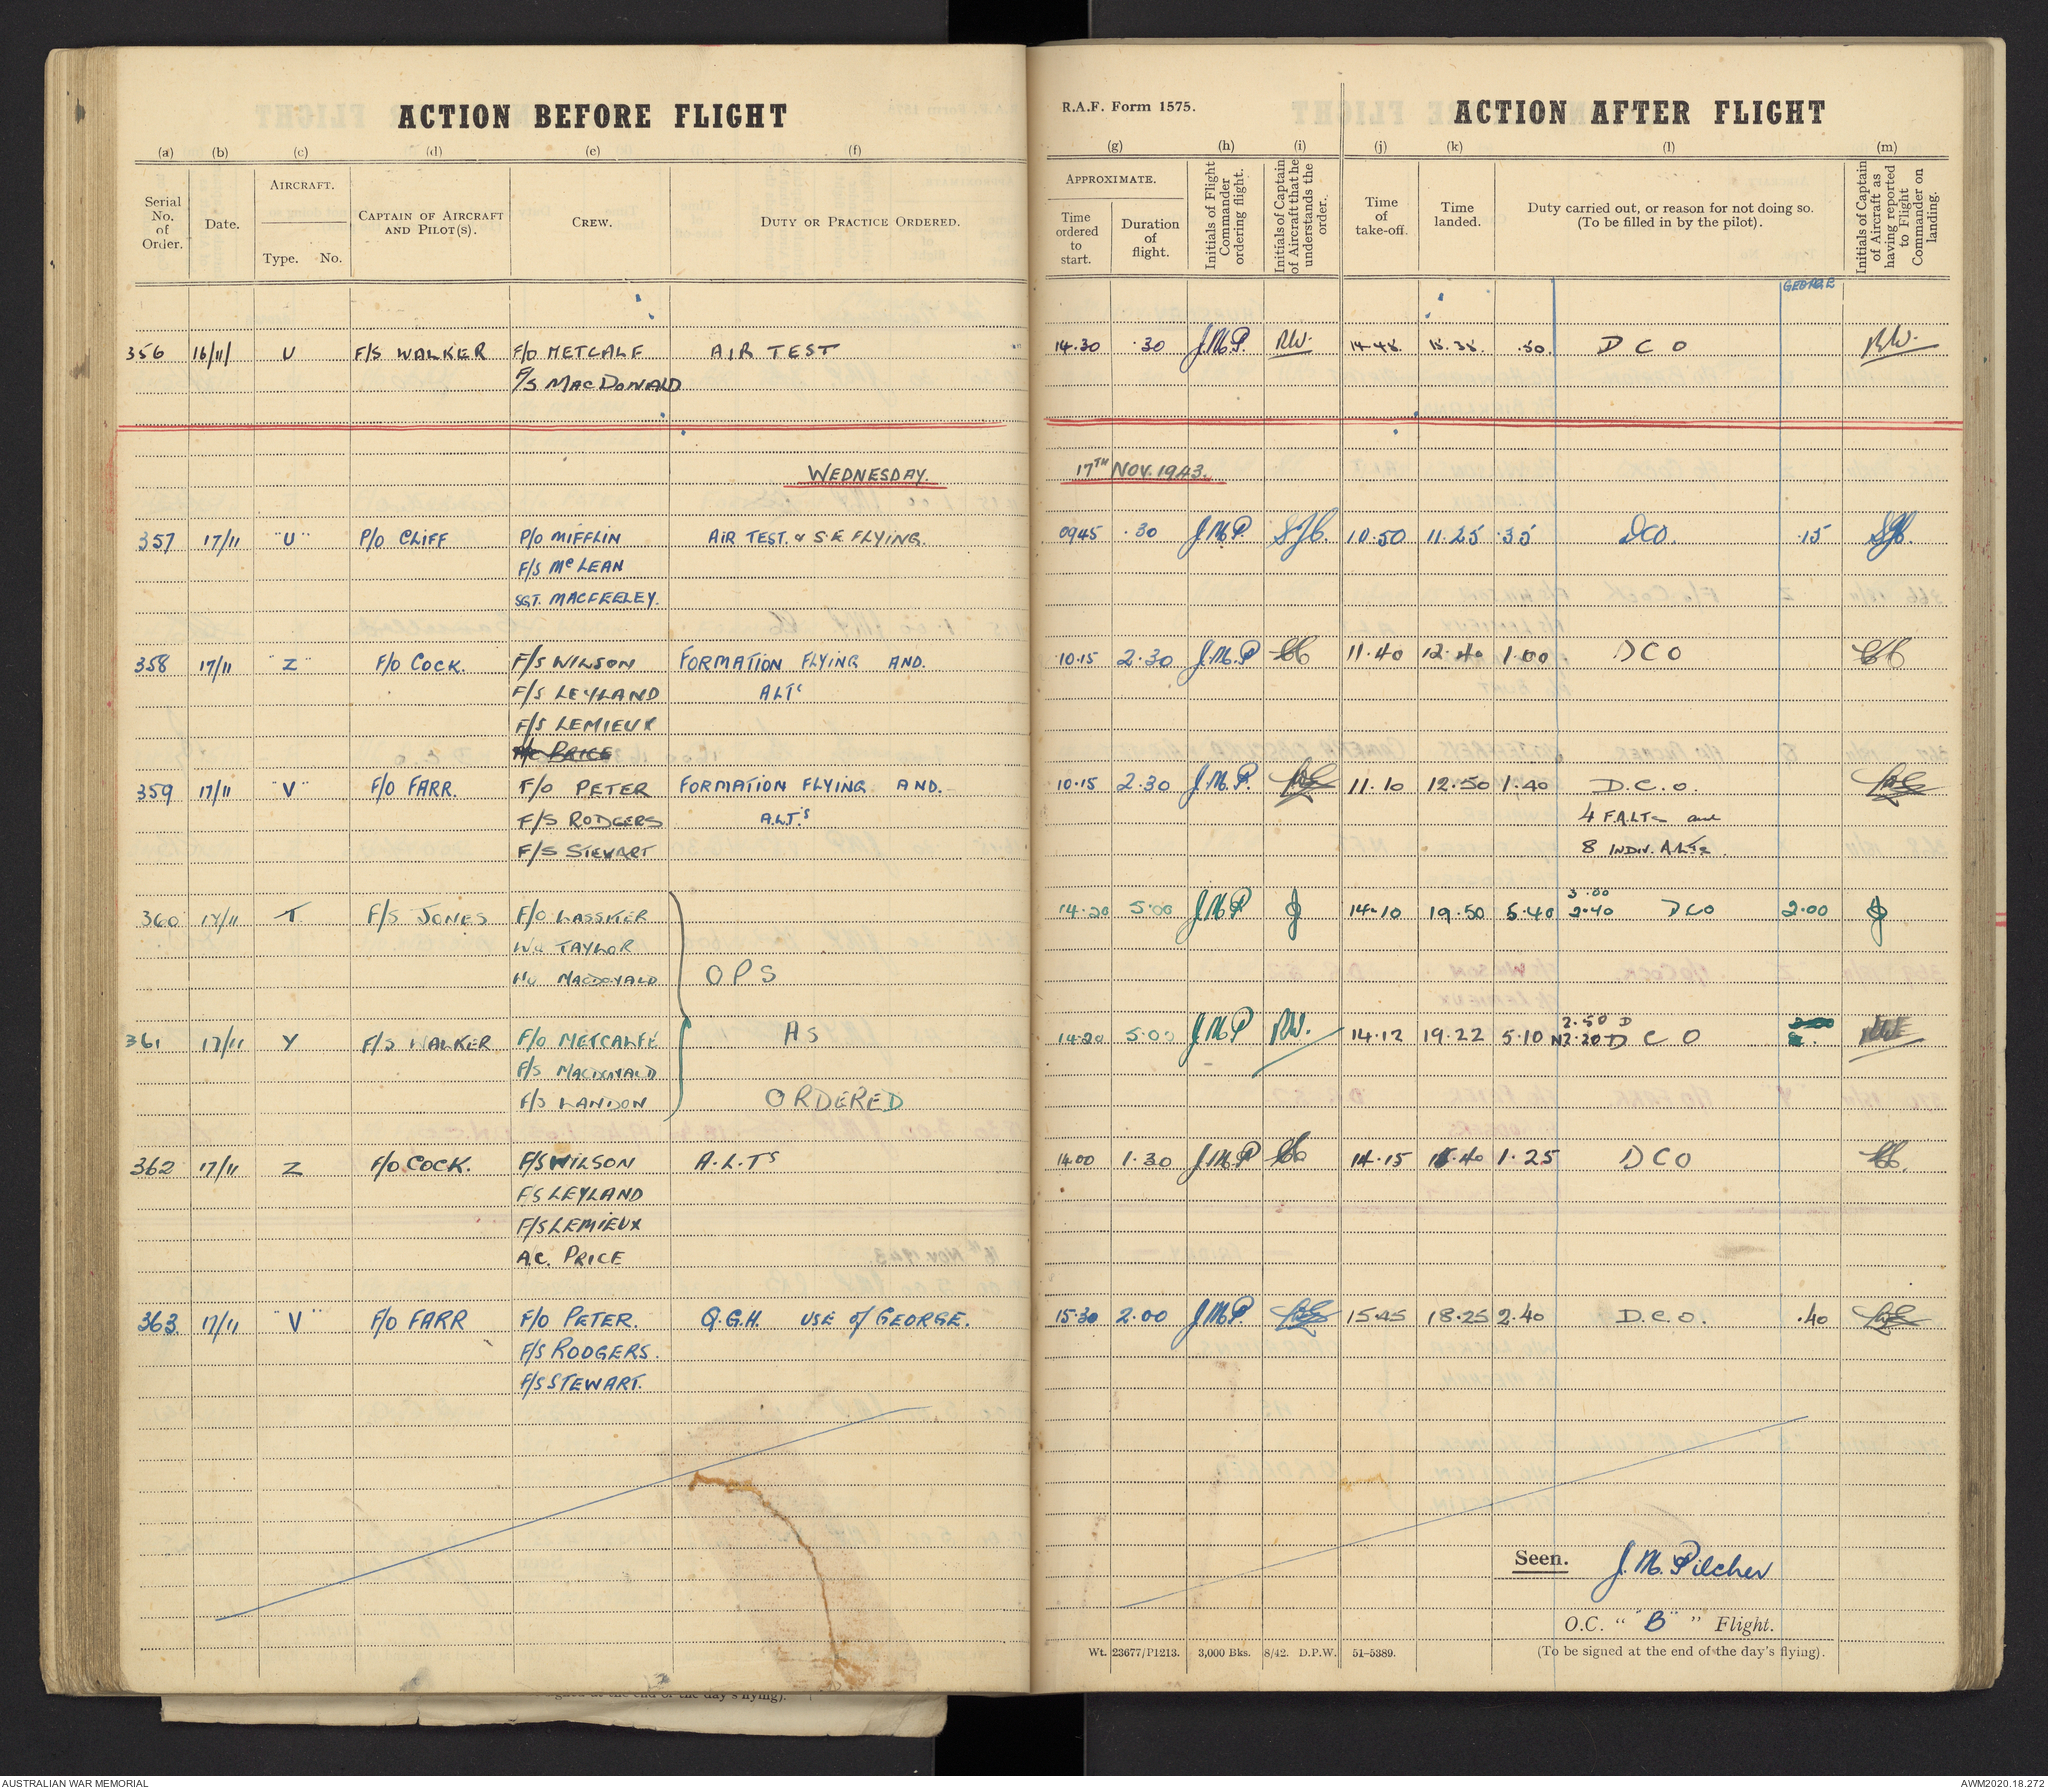 ACTION BEFORE FLIGHT
(a) (b) (c) (d) (e) (f)
Serial No. of Order.
Date.
AIRCRAFT.
Type. No.
CAPTAIN OF AIRCRAFT AND PILOT(S).
CREW.
DUTY OR PRACTICE ORDERED.
R.A.F. Form 1575.
ACTION AFTER FLIGHT
(g) (h) (i) (j) (k) (l) (m)
APPROXIMATE.
Time ordered to start.
Duration of flight.
Initials of Flight Commander ordering flight.
Initials of Captain of Aircraft that he understands the order.
Time of take-off.
Time landed.
Duty carried out, or reason for not doing so.
(To be filled in by the pilot).
Initials of Captain of Aircraft as having reported to Flight Commander on landing.
GEORGE
356 16/11/ U F/S WALKER F/O METCALF AIR TEST 14.30 .30 J.M.P. RW. 14.48 15.38 .50. D C O RW.
F/S MACDONALD
WEDNESDAY. 17TH NOV. 1943.
357 17/11 "U" P/O CLIFF P/O MIFFLIN AIR TEST. & S E FLYING. 0945 .30 J.M.P. SJC. 10.50 11.25 .35 DCO. .15 SJC.
F/S McLEAN
SGT. MACFEELEY.
358 17/11 "Z" F/O COCK. F/S WILSON FORMATION FLYING AND. 10.15 2.30 J.M.P 11.40 12.40 1.00 D C O
F/S LEYLAND ALTs
F/S LEMIEUX
PRICE
359 17/11 "V" F/O FARR. F/O PETER FORMATION FLYING AND. 10.15 2.30 J.M.P. 11.10 12.50 1.40 D.C.O.
F/S RODGERS A.L.T.s 4 F.A.L.Ts and
F/S STEWART 8 INDIV. A.L.Ts.
3.00
360 17/11 T F/S JONES F/O LASSITER 14.20 5.00 J.M.P J 14.10 19.50 5.40 2.40 DCO 2.00 J
WO TAYLOR
WO MACDONALD OPS
2.50 D
361 17/11 Y F/S WALKER F/O METCALFE AS 14.20 5.00 J.M.P RW. 14.12 19.22 5.10 N2.20 D C O
F/S MACDONALD
F/S LANDON ORDERED
362 17/11 Z F/O COCK. F/S WILSON A.L.Ts 14.00 1.30 J.M.P 14.15 15.40 1.25 D C O
F/S LEYLAND
F/S LEMIEUX
A.C. PRICE
363 17/11 "V" F/O FARR F/O PETER. Q.G.H. USE of GEORGE. 15.30 2.00 J.M.P 15.45 18.25 2.40 D.C.O. .40
F/S RODGERS.
F/S STEWART.
Seen. J. M. Pilcher
O.C. " "B" " Flight.
(To be signed at the end of the day's flying).
Wt. 23677/P1213. 3,000 Bks. 8/42. D.P.W. 51-5389.
at the end of the day's flying).
AUSTRALIAN WAR MEMORIAL
AWM2020.18.272